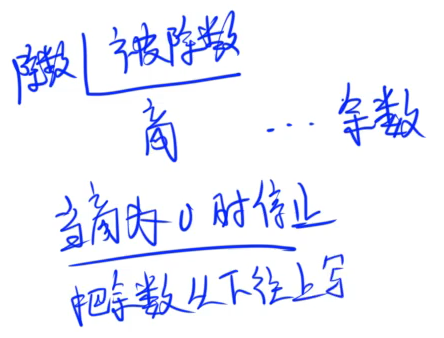 除数 被除数
商 ... 余数
当商为0时停止
把余数从下往上写